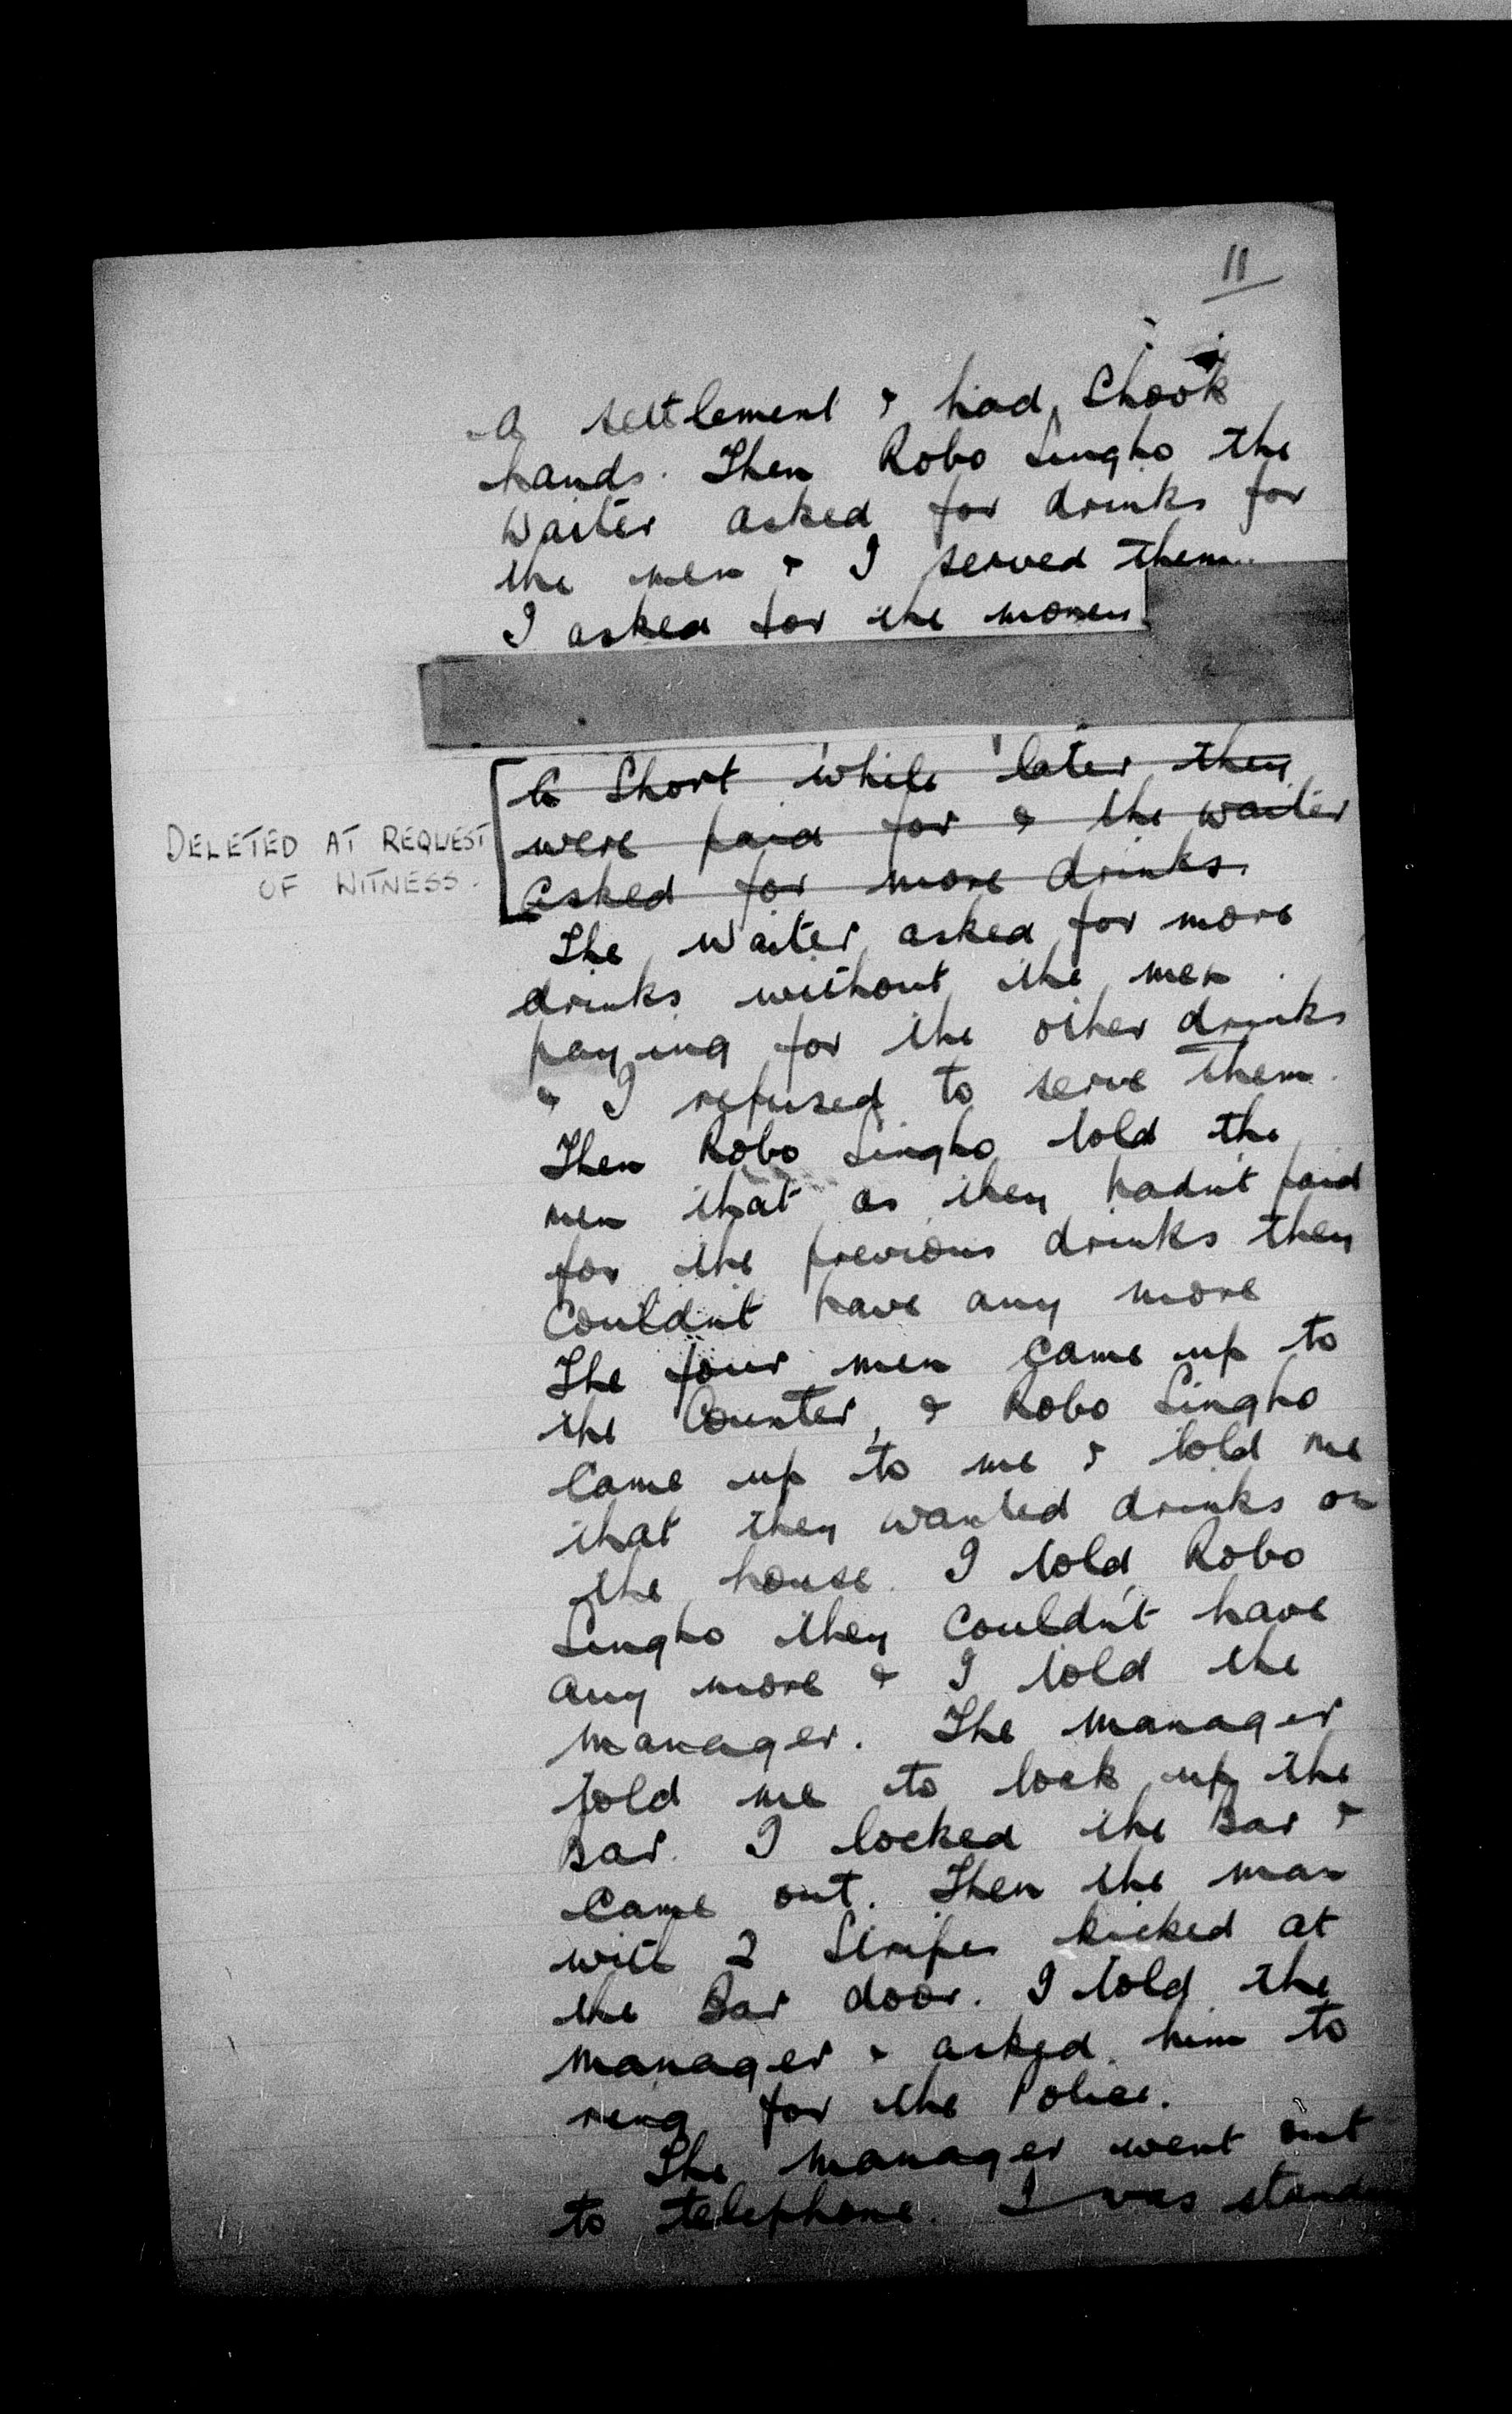 11
a settlement & had shook
hands. Then Robo Singho the
Waiter asked for drinks for
the men & I served them.
I asked for the money
A short while later they
were paid for & the waiter
asked for more drinks.
DELETED AT REQUEST
OF WITNESS.
The waiter asked for more
drinks without the men
paying for the other drinks
& I refused to serve them.
Then Robo Singho told the
men that as they hadn't paid
for the previous drinks they
couldn't have any more
The four men came up to
the Counter, & Robo Singho
came up to me & told me
that they wanted drinks on
the house. I told Robo
Singho they couldn't have
any more & I told the
manager. The manager
told me to lock up the
Bar. I locked the Bar &
came out. Then the man
with 2 Stripes kicked at
the Bar door. I told the
manager & asked him to
ring for the Police.
The manager went out
to telephone. I was